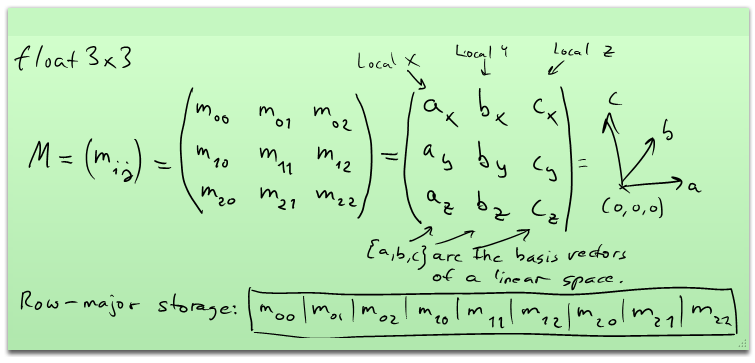 float3x3
Local X Local Y Local Z
M = (m_ij) = ( m_00 m_01 m_02 ) = ( a_x b_x c_x ) = c b a
m_10 m_11 m_12 a_y b_y c_y
m_20 m_21 m_22 a_z b_z c_z (0,0,0)
{a,b,c} are the basis vectors
of a linear space.
Row-major storage: m_00 | m_01 | m_02 | m_10 | m_11 | m_12 | m_20 | m_21 | m_22